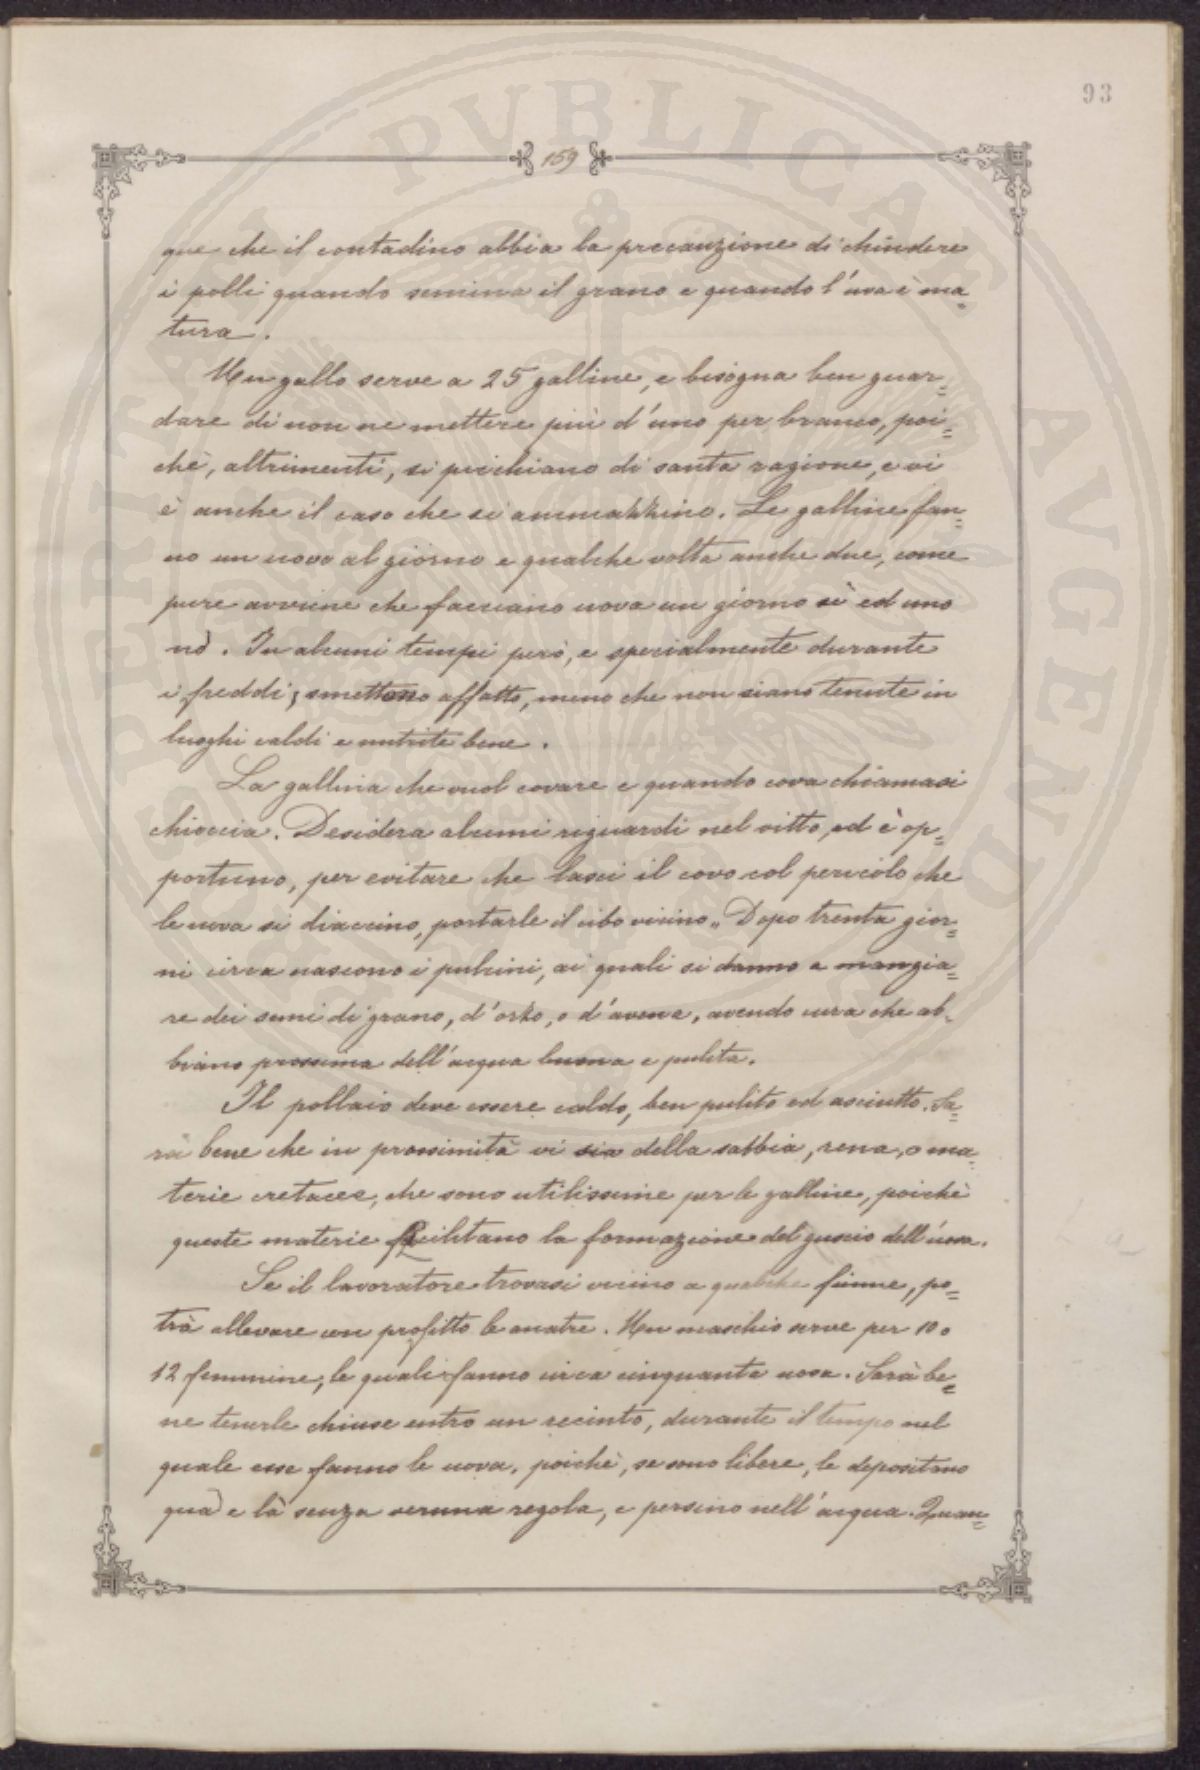 93
159
que che il contadino abbia la precauzione di chiudere
i polli quando semina il grano e quando l'uva è ma=
tura.
Un gallo serve a 25 galline, e bisogna ben guar=
dare di non ne mettere più d'uno per branco, poi=
chè, altrimenti, si picchiano di santa ragione, e vi
è anche il caso che si ammazzino. Le galline fan=
no un uovo al giorno e qualche volta anche due, come
pure avviene che facciano uova un giorno sì ed uno
nò. In alcuni tempi però, e specialmente durante
i freddi, smettono affatto, meno che non siano tenute in
luoghi caldi e nutrite bene.
La gallina che vuol covare e quando cova chiamasi
chioccia. Desidera alcuni riguardi nel vitto, ed è op=
portuno, per evitare che lasci il covo col pericolo che
le uova si diaccino, portarle il cibo vicino. Dopo trenta gior=
ni circa nascono i pulcini, ai quali si danno a mangia=
re dei semi di grano, d'orzo, o d'avena, avendo cura che ab=
biano prossima dell'acqua buona e pulita.
Il pollaio deve essere caldo, ben pulito ed asciutto. Sa=
rà bene che in prossimità vi sia della sabbia, rena, o ma=
terie cretacee, che sono utilissime per le galline, poichè
queste materie facilitano la formazione del guscio dell'uova.
Se il lavoratore trovasi vicino a qualche fiume, po=
trà allevare con profitto le anatre. Un maschio serve per 10 o
12 femmine, le quali fanno circa cinquanta uova. Sarà be=
ne tenerle chiuse entro un recinto, durante il tempo nel
quale esse fanno le uova, poichè, se sono libere, le depositano
quà e là senza veruna regola, e persino nell'acqua. Quan=
PVBLICAE AVGENDAE